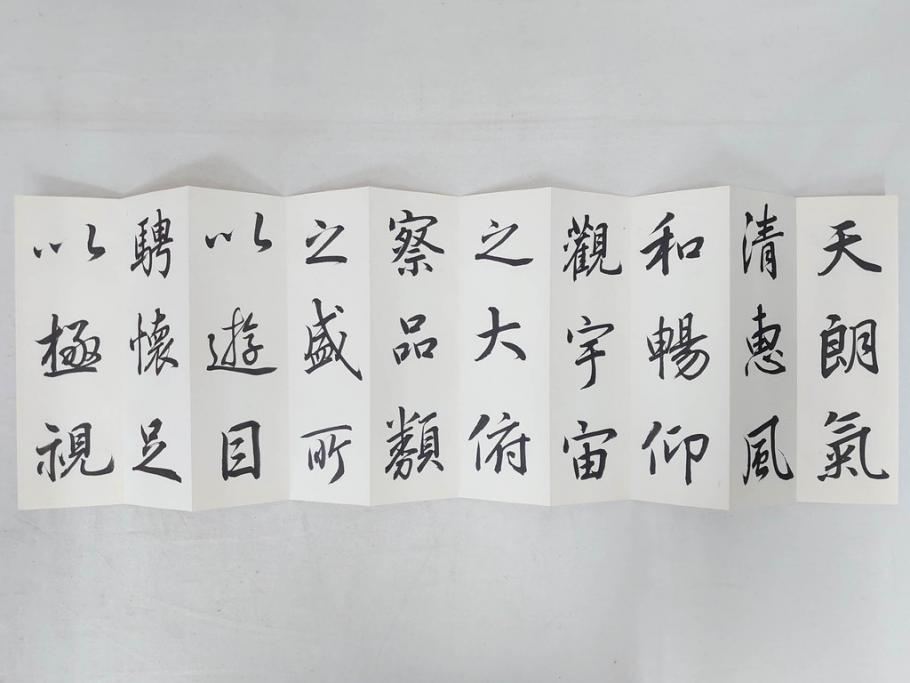 天朗氣
清惠風
和暢仰
觀宇宙
之大俯
察品類
之盛所
以遊目
騁懷足
以極視